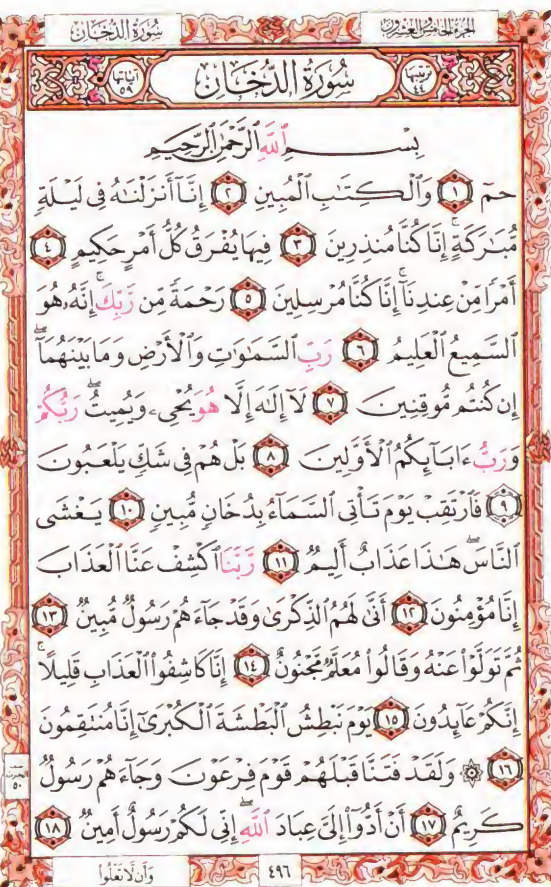 سُورَةُ الدُّخَانِ الجزء الخامس والعشرون
ترتيبها ٤٤ سُورَةُ الدُّخَانِ آياتها ٥٩
بِسْمِ ٱللَّهِ ٱلرَّحْمَٰنِ ٱلرَّحِيمِ
حمٓ ١ وَٱلْكِتَٰبِ ٱلْمُبِينِ ٢ إِنَّآ أَنزَلْنَٰهُ فِى لَيْلَةٍ
مُّبَٰرَكَةٍ ۚ إِنَّا كُنَّا مُنذِرِينَ ٣ فِيهَا يُفْرَقُ كُلُّ أَمْرٍ حَكِيمٍ ٤
أَمْرًا مِّنْ عِندِنَآ ۚ إِنَّا كُنَّا مُرْسِلِينَ ٥ رَحْمَةً مِّن رَّبِّكَ ۚ إِنَّهُۥ هُوَ
ٱلسَّمِيعُ ٱلْعَلِيمُ ٦ رَبِّ ٱلسَّمَٰوَٰتِ وَٱلْأَرْضِ وَمَا بَيْنَهُمَآ ۖ
إِن كُنتُم مُّوقِنِينَ ٧ لَآ إِلَٰهَ إِلَّا هُوَ يُحْىِۦ وَيُمِيتُ ۖ رَبُّكُمْ
وَرَبُّ ءَابَآئِكُمُ ٱلْأَوَّلِينَ ٨ بَلْ هُمْ فِى شَكٍّ يَلْعَبُونَ
٩ فَٱرْتَقِبْ يَوْمَ تَأْتِى ٱلسَّمَآءُ بِدُخَانٍ مُّبِينٍ ١٠ يَغْشَى
ٱلنَّاسَ ۖ هَٰذَا عَذَابٌ أَلِيمٌ ١١ رَّبَّنَا ٱكْشِفْ عَنَّا ٱلْعَذَابَ
إِنَّا مُؤْمِنُونَ ١٢ أَنَّىٰ لَهُمُ ٱلذِّكْرَىٰ وَقَدْ جَآءَهُمْ رَسُولٌ مُّبِينٌ ١٣
ثُمَّ تَوَلَّوْا۟ عَنْهُ وَقَالُوا۟ مُعَلَّمٌ مَّجْنُونٌ ١٤ إِنَّا كَاشِفُوا۟ ٱلْعَذَابِ قَلِيلًا ۚ
إِنَّكُمْ عَآئِدُونَ ١٥ يَوْمَ نَبْطِشُ ٱلْبَطْشَةَ ٱلْكُبْرَىٰٓ إِنَّا مُنتَقِمُونَ
١٦ ۞ وَلَقَدْ فَتَنَّا قَبْلَهُمْ قَوْمَ فِرْعَوْنَ وَجَآءَهُمْ رَسُولٌ
كَرِيمٌ ١٧ أَنْ أَدُّوٓا۟ إِلَىَّ عِبَادَ ٱللَّهِ ۖ إِنِّى لَكُمْ رَسُولٌ أَمِينٌ ١٨
٤٩٦ وَأَن لَّا تَعْلُوا۟